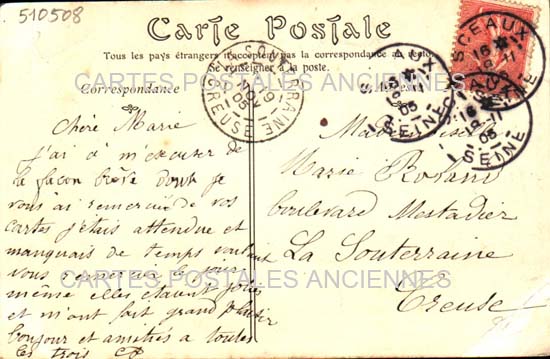 510508
Carte Postale
Tous les pays étrangers n'acceptent pas la correspondance au recto.
Se renseigner à la poste.
Correspondance
Adresse
LA SOUTERRAINE
CREUSE
SCEAUX
SEINE
SCEAUX
SEINE
SCEAUX
SEINE
CARTES POSTALES ANCIENNES
Chère Marie
j'ai à m'excuser de
la façon brève dont je
vous ai remercié de vos
cartes j'étais attendue et
manquais de temps voulant
vous remercier le jour
même elles étaient jolies
et m'ont fait grand plaisir
bonjour et amitiés à toutes
les trois
Marie Roland
boulevard Mestadier
La Souterraine
Creuse
CARTES POSTALES ANCIENNES